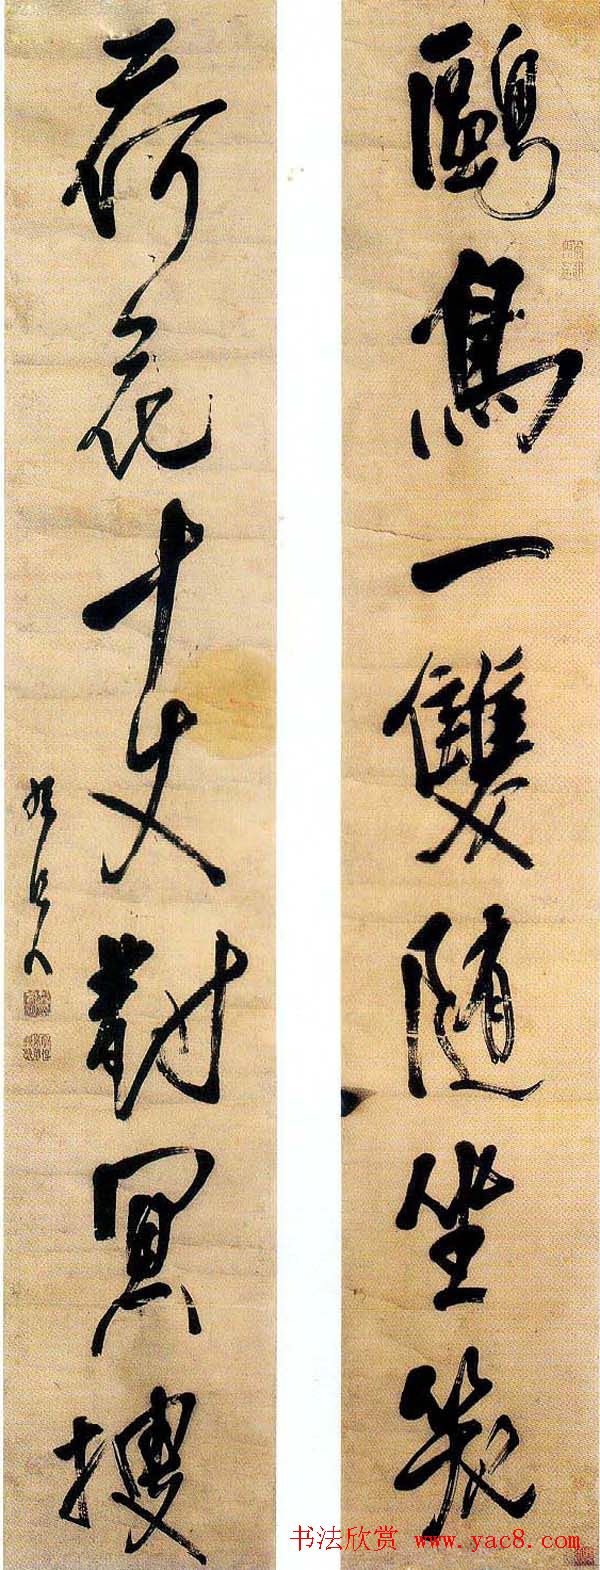 鷗鳥一雙随坐笑
荷花十丈對冥搜
书法欣赏 www.yac8.com